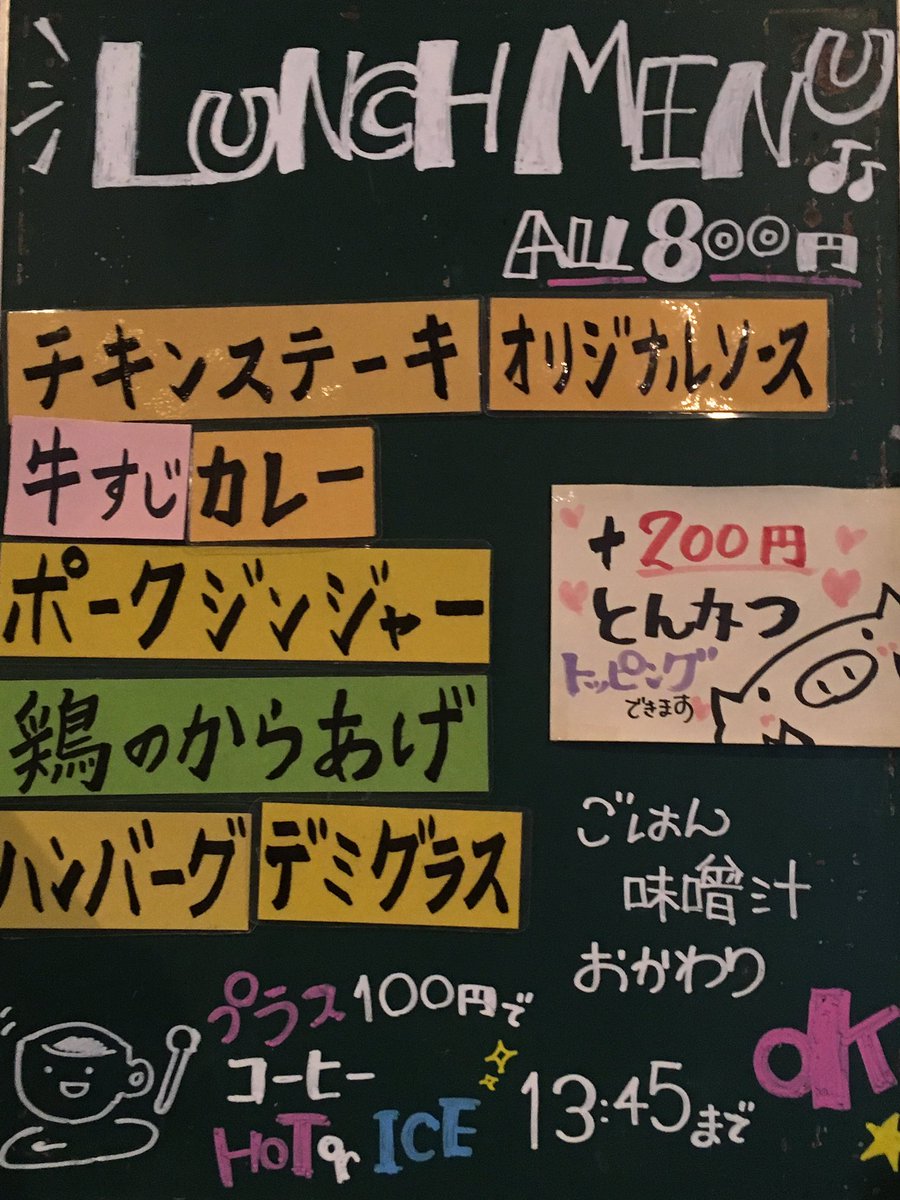 LUNCH MENU
ALL 800円
チキンステーキ オリジナルソース
牛すじカレー
ポークジンジャー
鶏のからあげ
ハンバーグ デミグラス
+200円
とんかつ
トッピング
できます
ごはん
味噌汁
おかわり
OK
プラス100円で
コーヒー
HOT or ICE
13:45まで